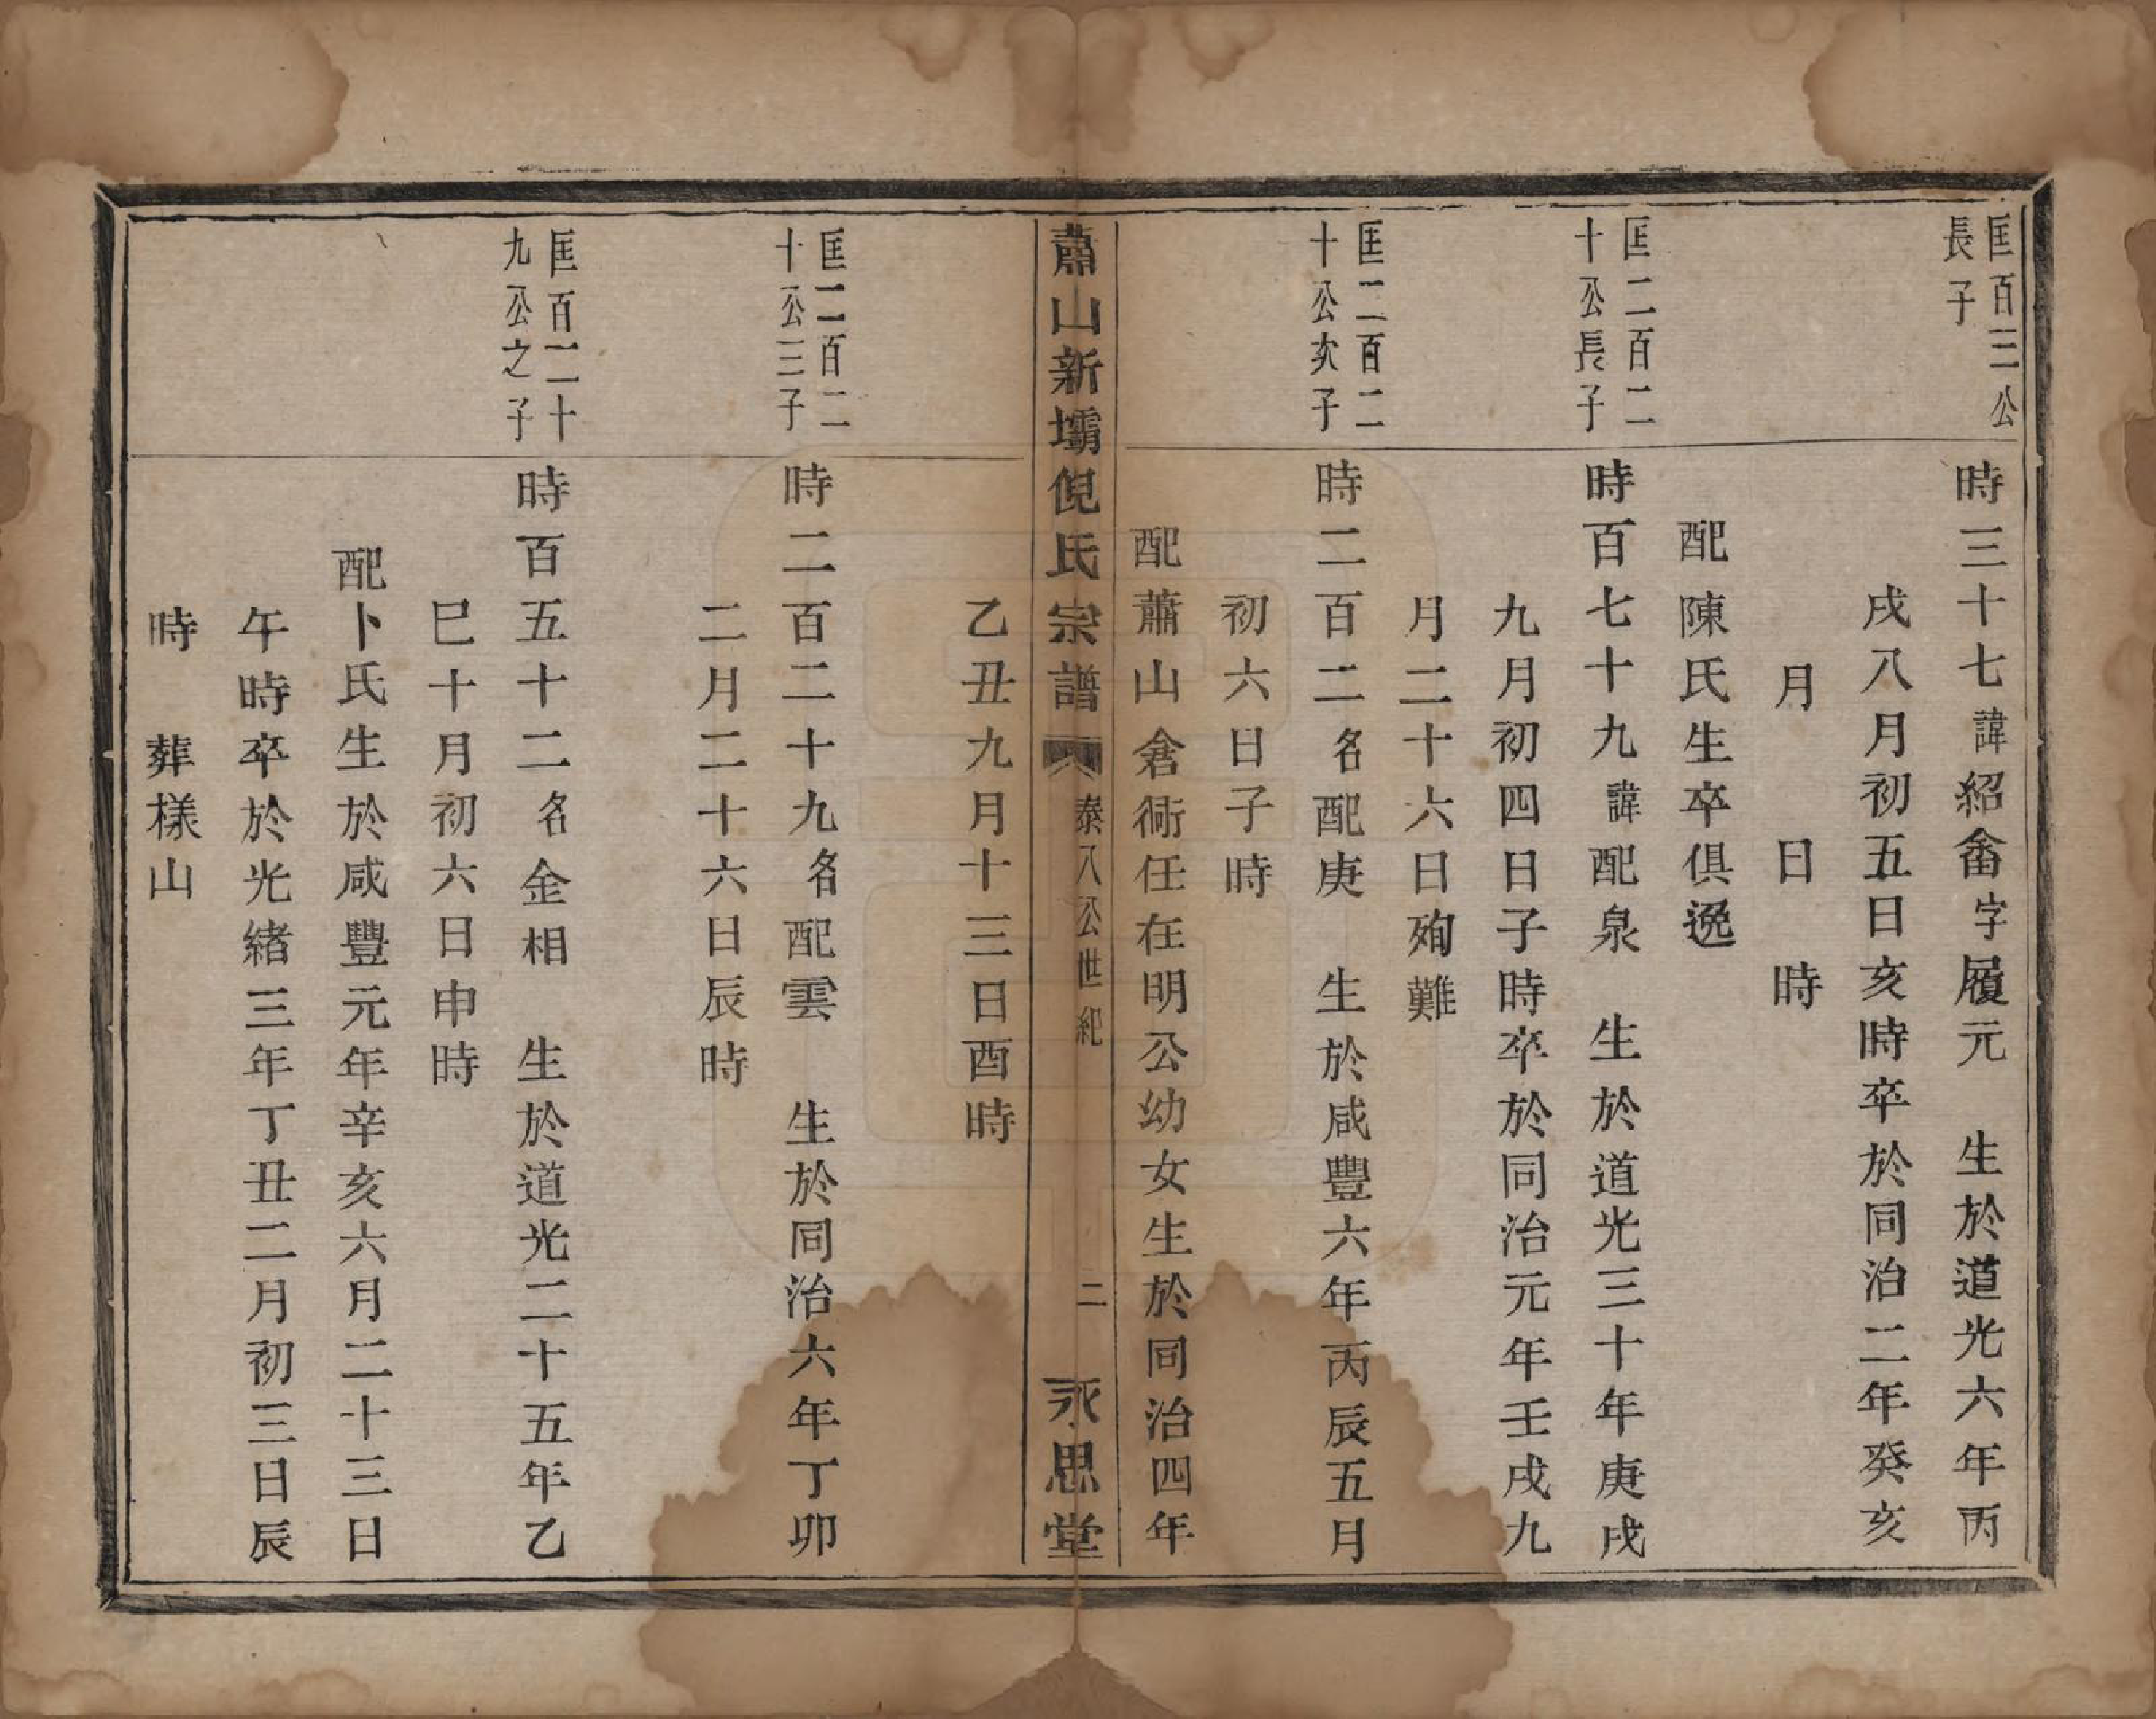 匡百三公
長子
時三十七諱紹畬字履元　生於道光六年丙
戌八月初五日亥時卒於同治二年癸亥
月　日　時
配陳氏生卒俱逸
匡二百二
十公長子
時百七十九諱配泉　生於道光三十年庚戌
九月初四日子時卒於同治元年壬戌九
月二十六日殉難
匡二百二
十公次子
時二百二名配庚　生於咸豐六年丙辰五月
初六日子時
配蕭山倉衕任在明公幼女生於同治四年
蕭山新壩倪氏宗譜　泰八公世紀　二　永思堂
乙丑九月十三日酉時
匡二百二
十公三子
時二百二十九名配雲　生於同治六年丁卯
二月二十六日辰時
匡百二十
九公之子
時百五十二名金相　生於道光二十五年乙
巳十月初六日申時
配卜氏生於咸豐元年辛亥六月二十三日
午時卒於光緒三年丁丑二月初三日辰
時　葬樣山